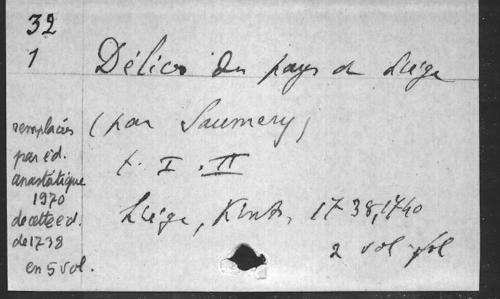 32
1
Délices du pays de Liége
(par Saumery)
t. I. II
Liége, Kints, 1738, 1740
2 vol fol
remplacés
par éd.
anastatique
1970
de cette éd.
de 1738
en 5 vol.